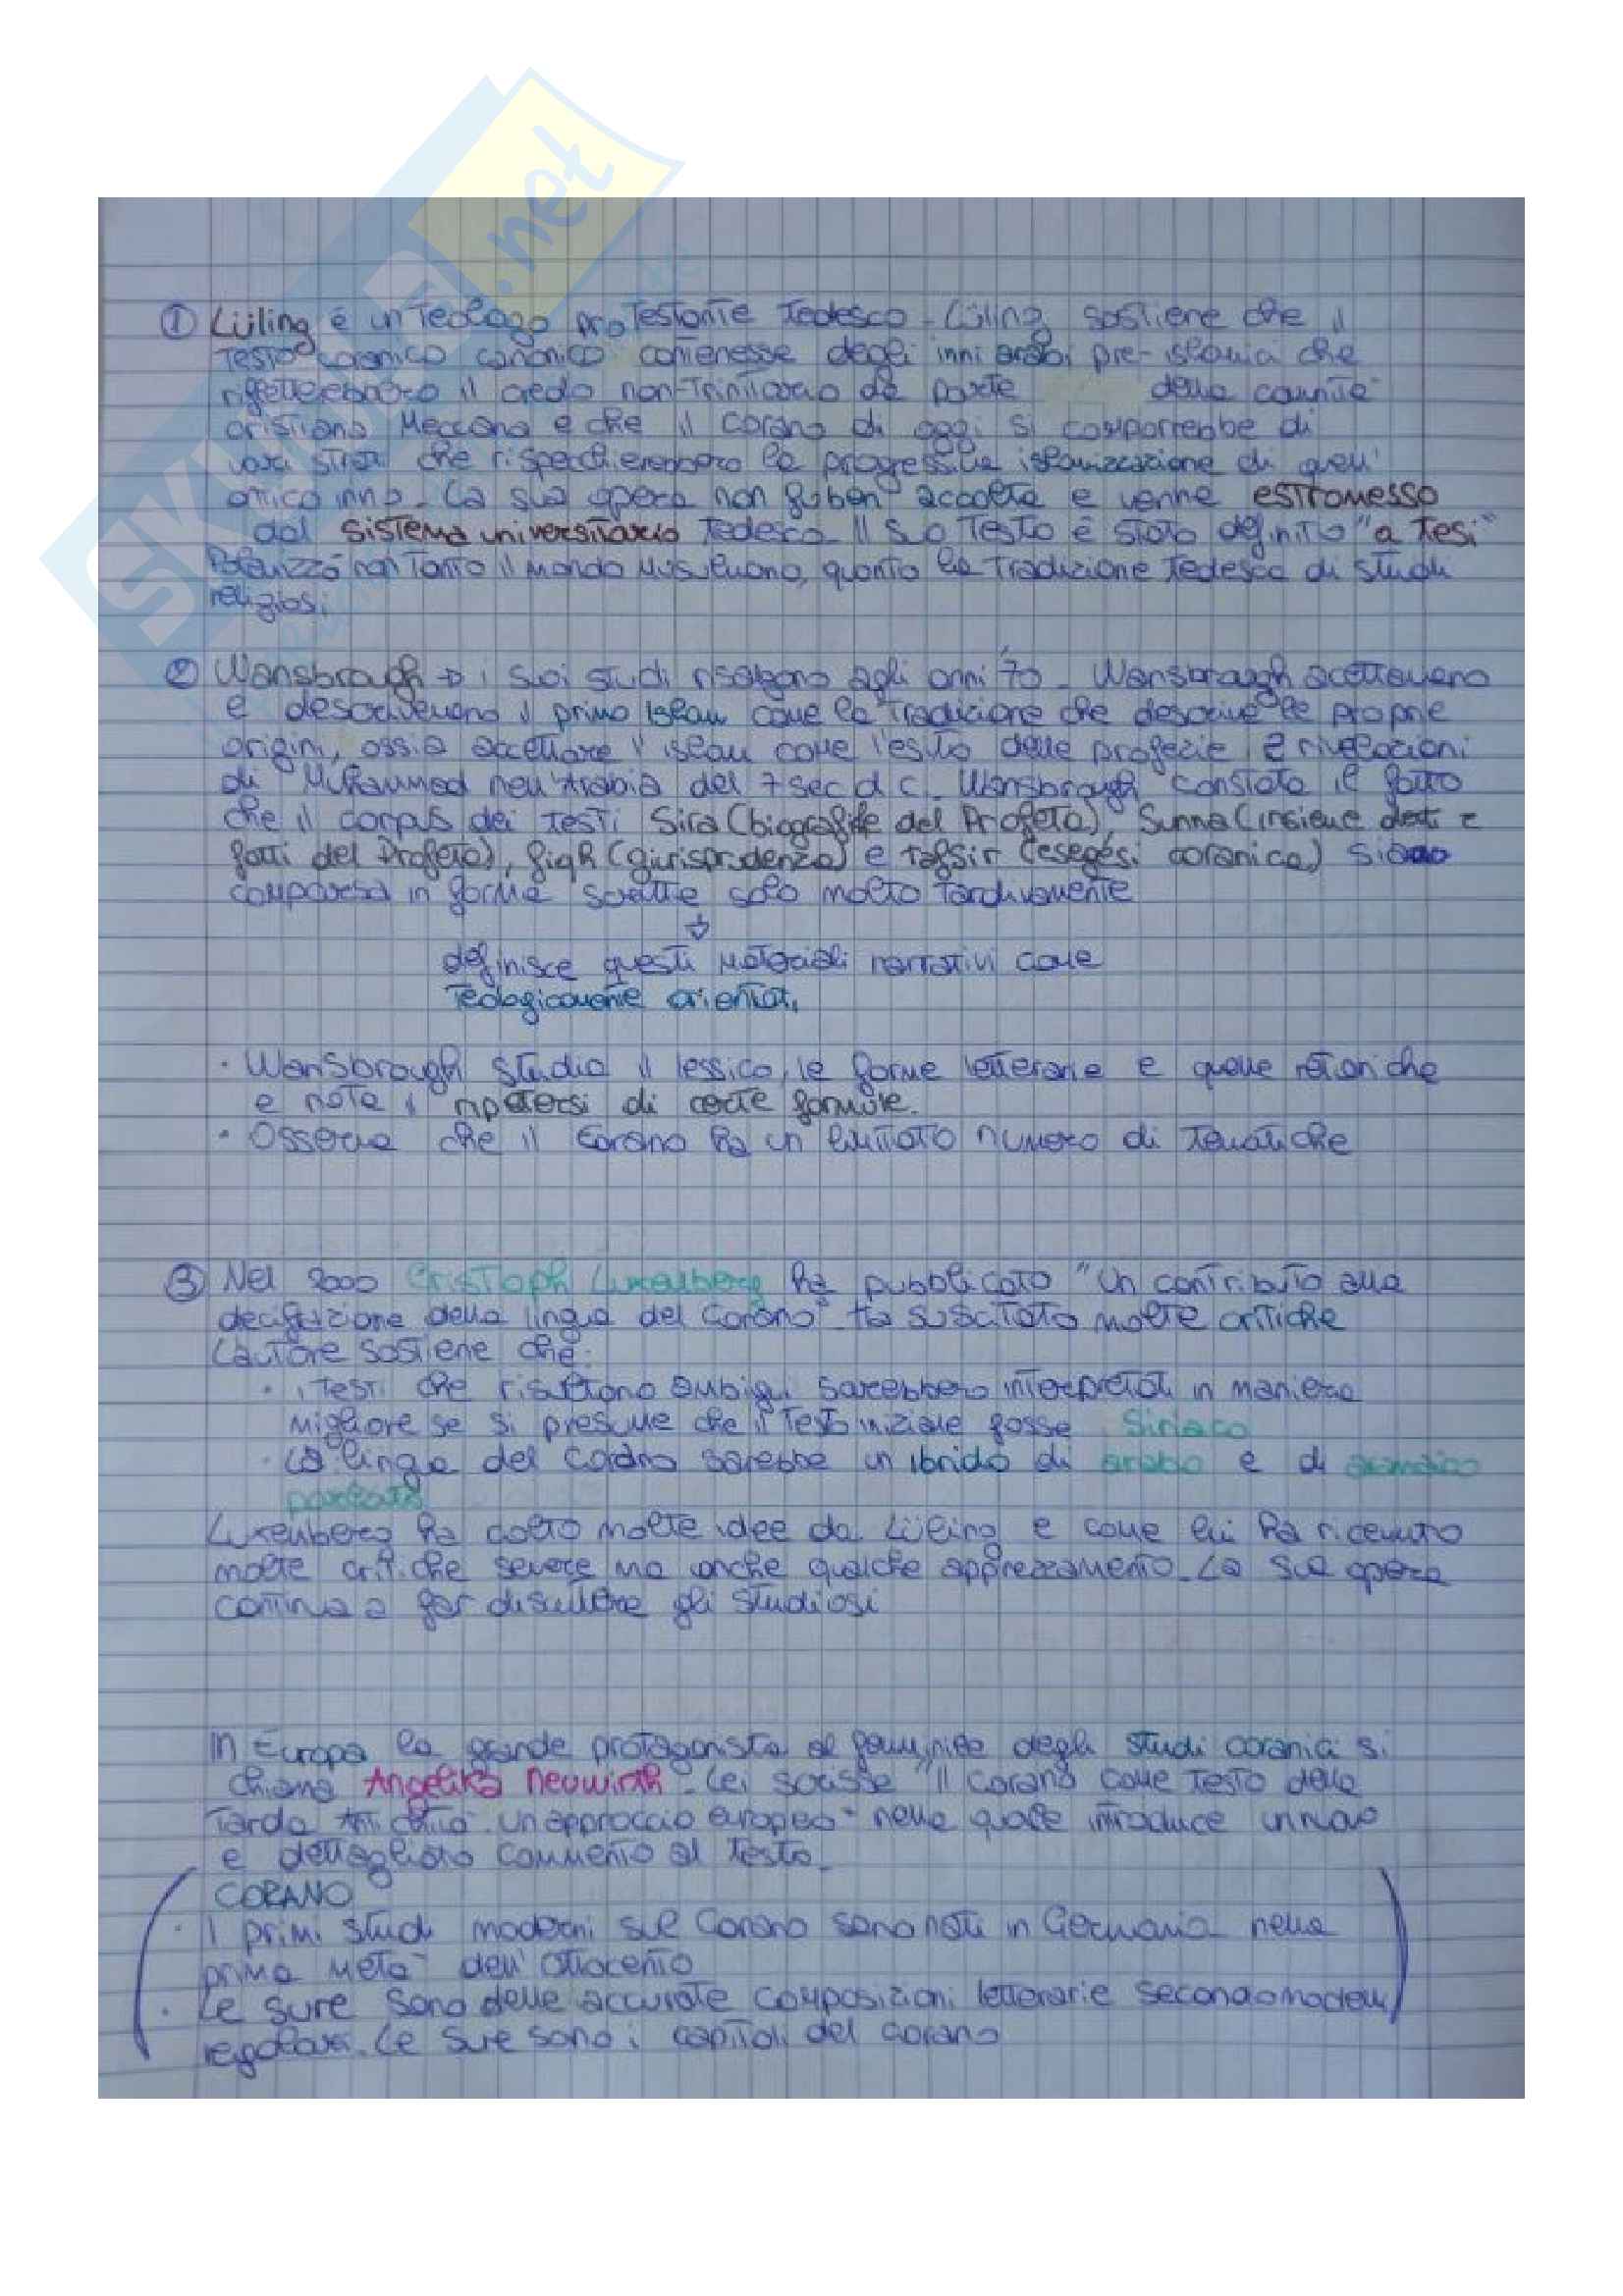 SKUOLA.net
① Lüling è un teologo protestante tedesco. Lüling sostiene che il
testo coranico canonico contenesse degli inni arabi pre-islamici che
rifletterebbero il credo non-trinitario da parte della comunità
cristiana Meccana e che il Corano di oggi si comporrebbe di
vari strati che rispecchierebbero la progressiva islamizzazione di quell'
antico inno. La sua opera non fu ben accolta e venne estromesso
dal sistema universitario tedesco. Il suo testo è stato definito "a tesi"
Polemizzò non tanto il mondo Musulmano, quanto la tradizione tedesca di studi
religiosi
② Wansbrough → i suoi studi risalgono agli anni '70. Wansbrough accettavano
e descrivevano il primo Islam come la tradizione che descrive le proprie
origini, ossia accettare l'islam come l'esito delle profezie e rivelazioni
di Muhammad nell'Arabia del 7 sec d.C. Wansbrough constata il fatto
che il corpus dei testi Sira (biografie del Profeta), Sunna (insieme detti e
fatti del Profeta), fiqh (giurisprudenza) e tafsir (esegesi coranica) siano
comparsa in forma scritte solo molto tardivamente
↓
definisce questi materiali narrativi come
teologicamente orientati
· Wansbrough studia il lessico, le forme letterarie e quelle retoriche
e nota il ripetersi di certe formule.
· Osserva che il Corano ha un limitato numero di tematiche
③ Nel 2000 Cristoph Luxemberg ha pubblicato "Un contributo alla
decifrazione della lingua del Corano". Ha suscitato molte critiche
L'autore sostiene che:
· i testi che risultano ambigui sarebbero interpretati in maniera
migliore se si presume che il testo iniziale fosse Siriaco
· La lingua del Corano sarebbe un ibrido di arabo e di aramaico
parlato
Luxenberg ha colto molte idee da Lüling e come lui ha ricevuto
molte critiche severe ma anche qualche apprezzamento. La sua opera
continua a far discutere gli studiosi
In Europa la grande protagonista al femminile degli studi coranici si
chiama Angelika Neuwirth. Lei scrisse "Il corano come testo della
Tarda Antichità. Un approccio europeo" nella quale introduce un nuovo
e dettagliato commento al testo.
CORANO
· I primi studi moderni sul Corano sono nati in Germania nella
prima metà dell'Ottocento
· Le sure sono delle accurate composizioni letterarie secondo modelli
regolari. Le sure sono i capitoli del corano